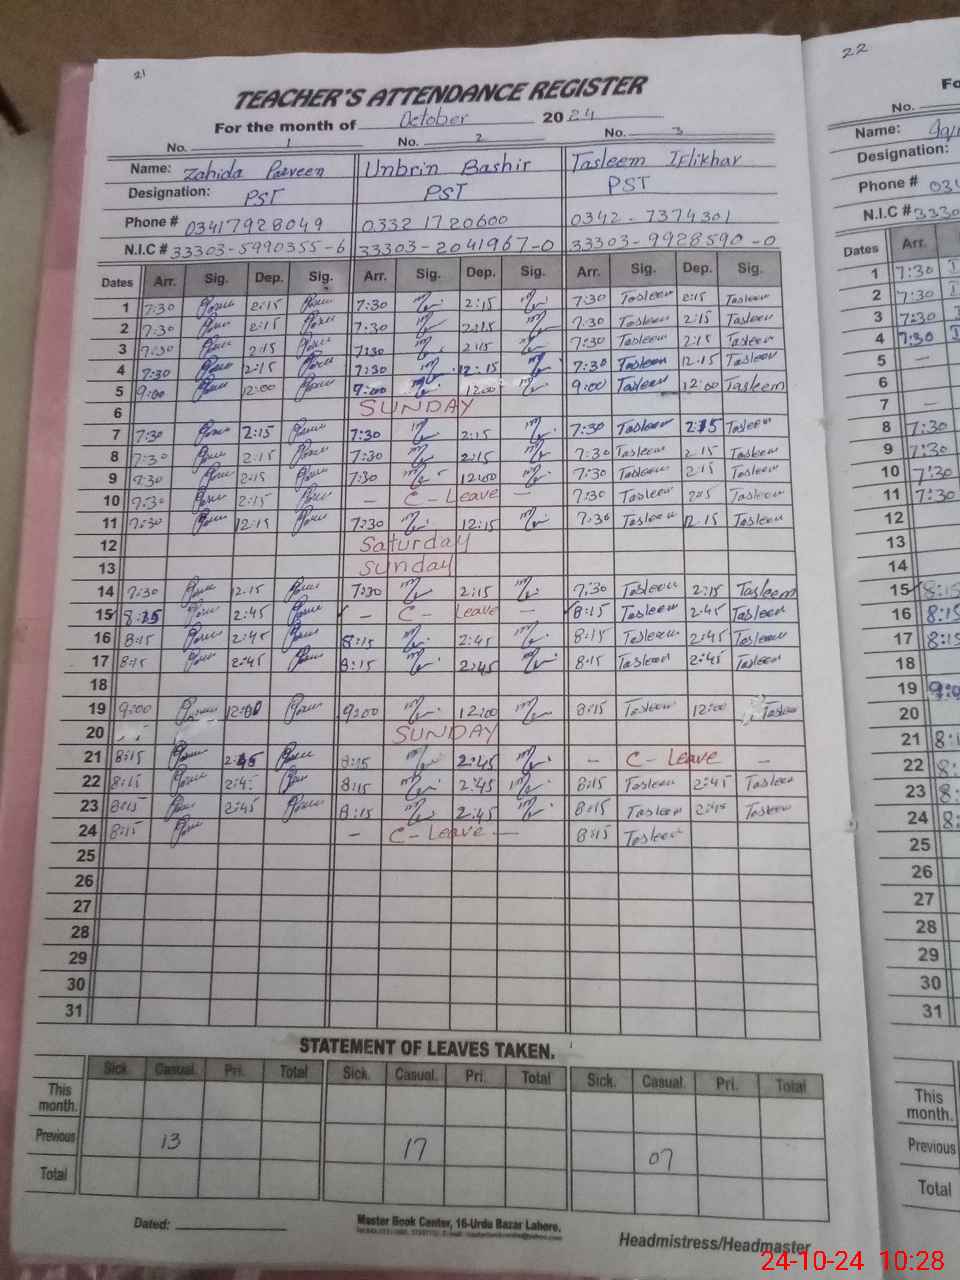 21
22
TEACHER'S ATTENDANCE REGISTER
For the month of October 2024
No. 1 No. 2 No. 3
Name: Zahida Parveen Unbrin Bashir Tasleem Iftikhar
Designation: PST PST PST
Phone # 03417928049 0332 1720600 0342-7374301
N.I.C # 33303-5990355-6 33303-2041967-0 33303-9928590-0
Dates Arr. Sig. Dep. Sig. Arr. Sig. Dep. Sig. Arr. Sig. Dep. Sig.
1 7:30 2:15 7:30 2:15 7:30 Tasleem 2:15 Tasleem
2 7:30 2:15 7:30 2:15 7:30 Tasleem 2:15 Tasleem
3 7:30 2:15 7:30 2:15 7:30 Tasleem 2:15 Tasleem
4 7:30 2:15 7:30 12:15 7:30 Tasleem 12:15 Tasleem
5 9:00 12:00 9:00 12:00 9:00 Tasleem 12:00 Tasleem
6 SUNDAY
7 7:30 2:15 7:30 2:15 7:30 Tasleem 2:15 Tasleem
8 7:30 2:15 7:30 2:15 7:30 Tasleem 2:15 Tasleem
9 7:30 2:15 7:30 12:00 7:30 Tasleem 2:15 Tasleem
10 7:30 2:15 - C - Leave - 7:30 Tasleem Tasleem
11 7:30 12:15 7:30 12:15 7:30 Tasleem 12 15 Tasleem
12 Saturday
13 Sunday
14 7:30 12:15 7:30 2:15 7:30 Tasleem 2:15 Tasleem
15 8:15 2:45 - C - Leave - 8:15 Tasleem 2:45 Tasleem
16 8:15 2:45 8:15 2:45 8:15 Tasleem 2:45 Tasleem
17 8:15 2:45 8:15 2:45 8:15 Tasleem 2:45 Tasleem
18
19 9:00 12:00 9:00 12:00 8:15 Tasleem 12:00 Tasleem
20 SUNDAY
21 8:15 2:45 8:15 2:45 - C - Leave -
22 8:15 2:45 8:15 2:45 8:15 Tasleem 2:45 Tasleem
23 8:15 2:45 8:15 2:45 8:15 Tasleem 2:45 Tasleem
24 8:15 - C - Leave - 8:15 Tasleem
25
26
27
28
29
30
31
STATEMENT OF LEAVES TAKEN.
Sick. Casual. Pri. Total Sick. Casual. Pri. Total Sick. Casual. Pri. Total
This month.
Previous 13 17 07
Total
Dated:
Master Book Center, 16-Urdu Bazar Lahore.
Headmistress/Headmaster
No.
Name:
Designation:
Phone # 034
N.I.C # 3330
Dates Arr.
1 7:30
2 7:30
3 7:30
4 7:30
5 -
6
7 -
8 7:30
9 7:30
10 7:30
11 7:30
12
13
14
15 8:15
16 8:15
17 8:15
18
19 9:0
20
21 8:1
22 8:
23 8:
24 8:
25
26
27
28
29
30
31
This month.
Previous
Total
24-10-24 10:28